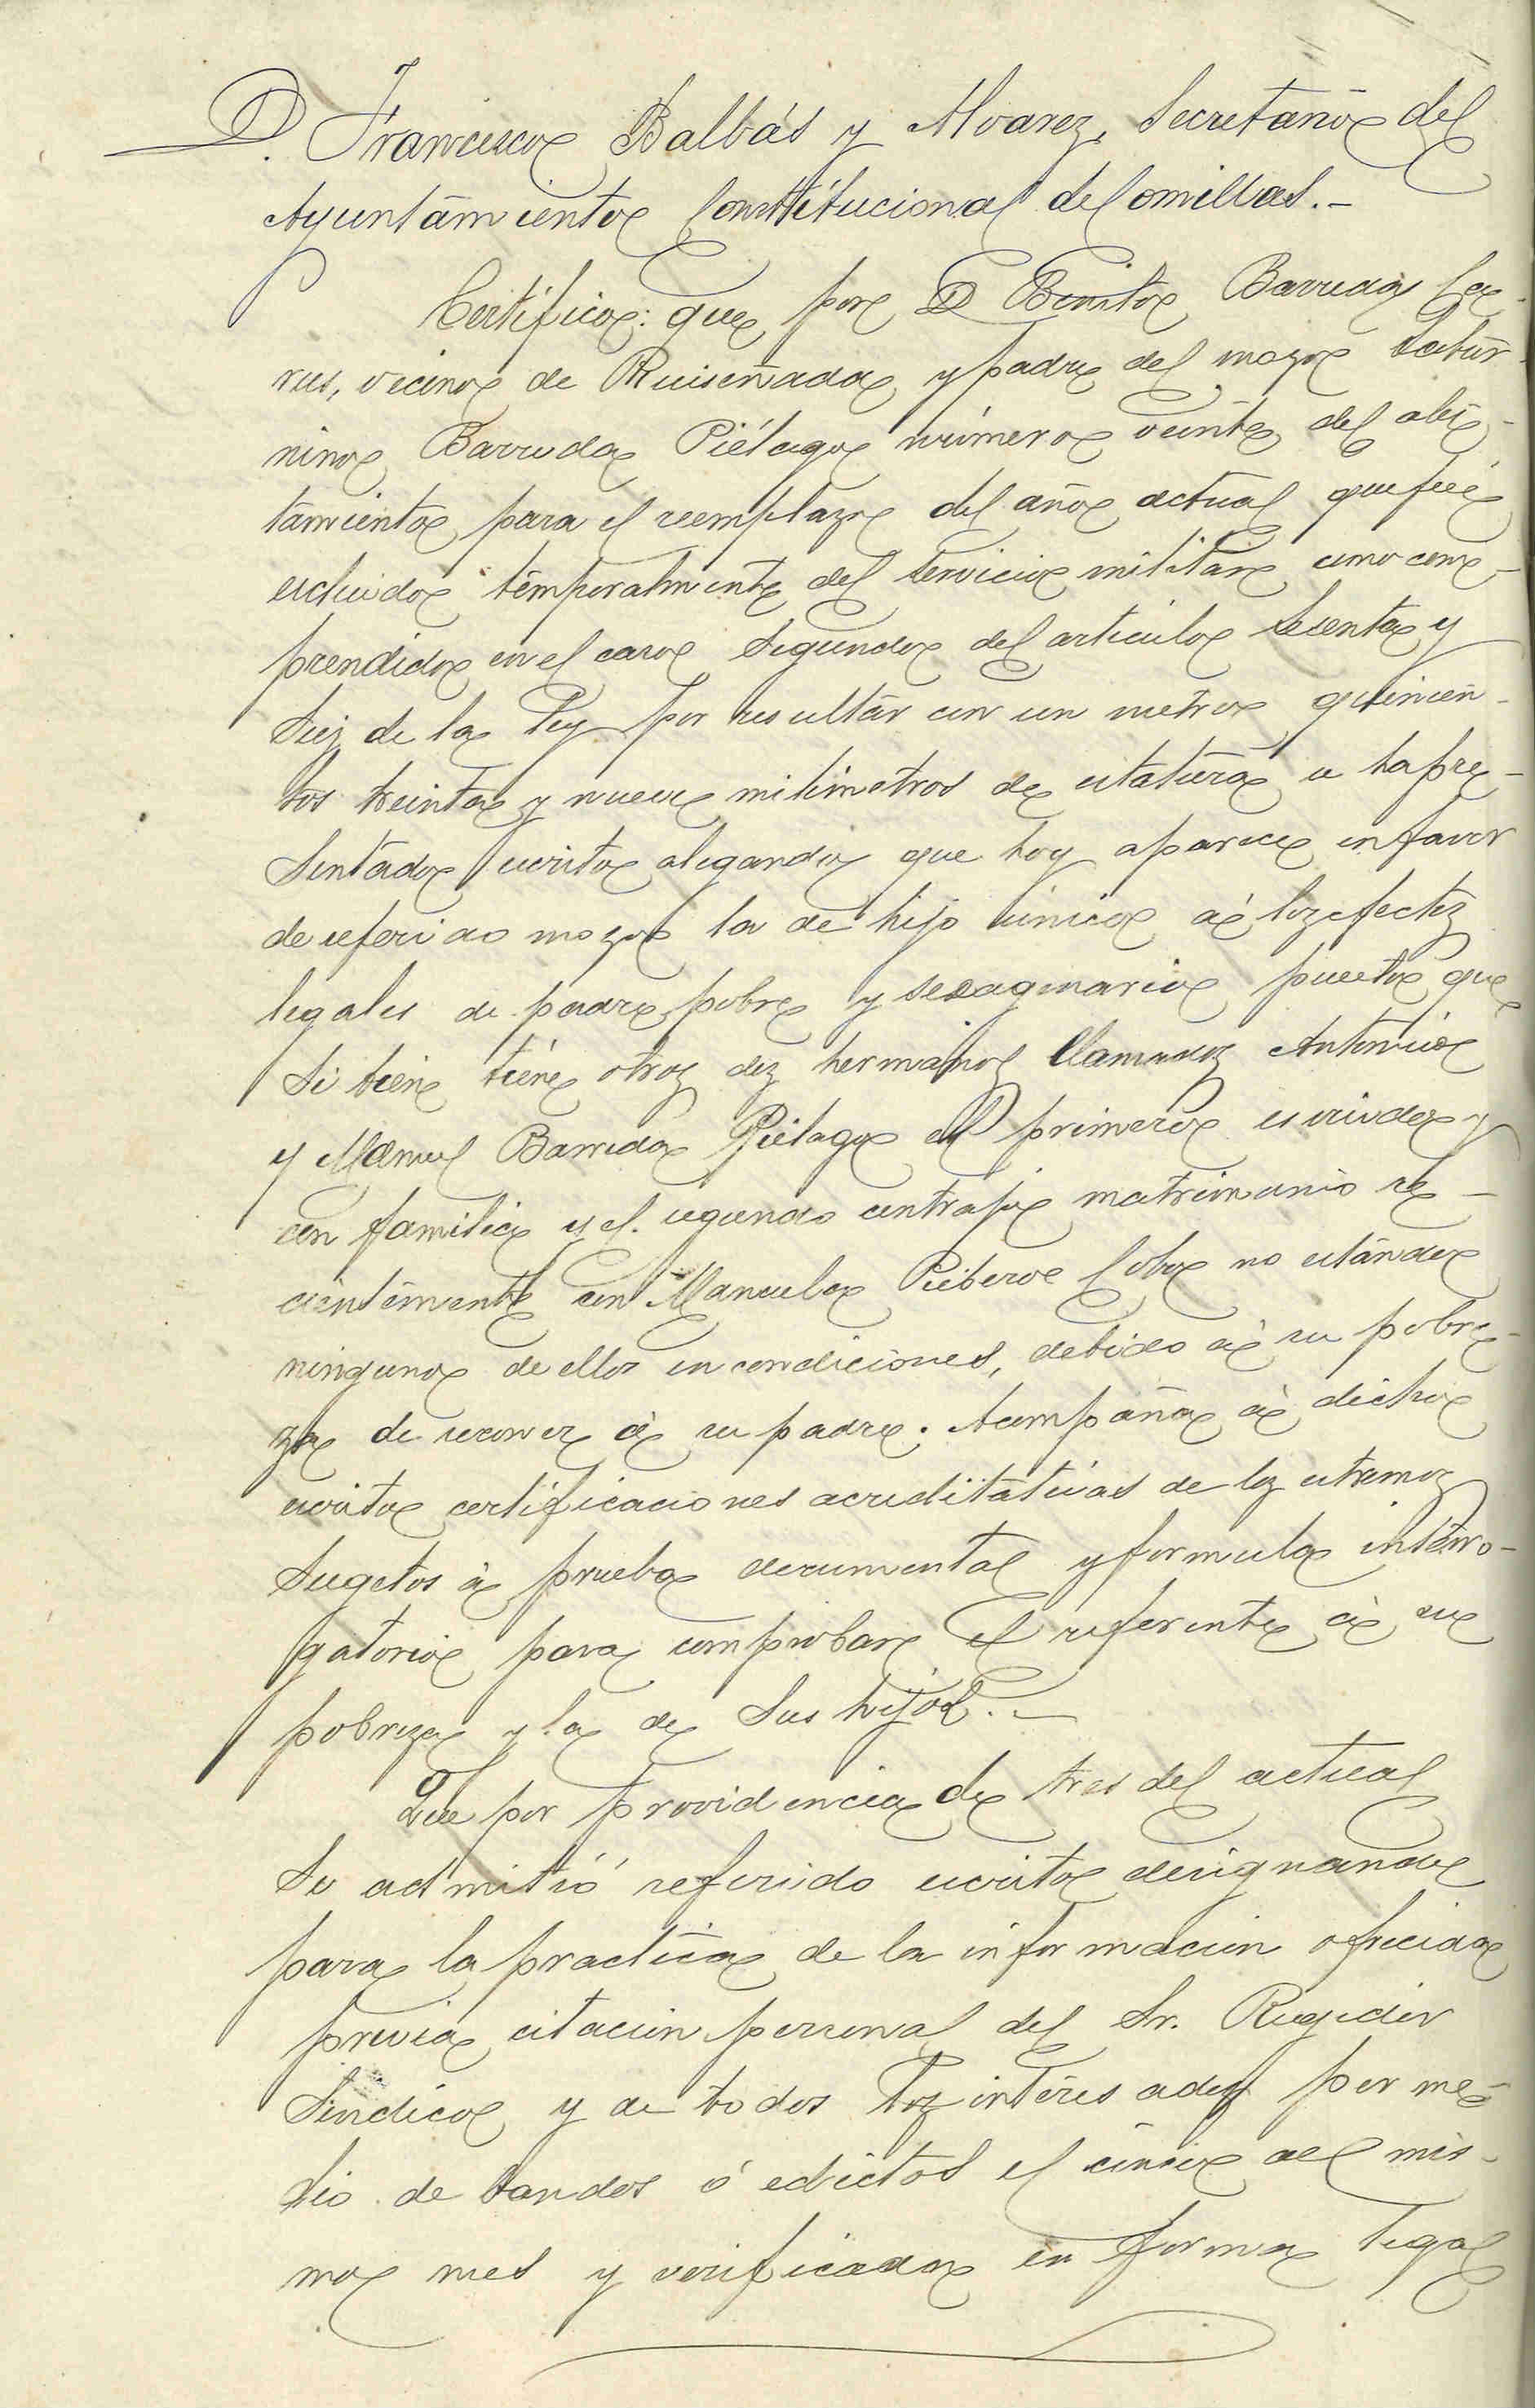 D. Francisco Balbás y Alvarez, Secretario del
Ayuntamiento Constitucional de Comillas.-
Certifico: que por D Benito Barreda
rus, vecino de Ruiseñada y padre del mozo Satur-
nino Barreda Piélago número veinte del alis-
tamiento para el reemplazo del año actual que fué
escluido temporalmente del servicio militar como com-
prendido en el caso segundo del articulo sesenta y
seis de la Ley por resultar con un metro quinien-
tos treinta y nueve milimetros de estatura se ha pre-
sentado escrito alegando que hoy aparece en favor
de referido mozo la de hijo único á los efectos
legales de padre pobre y sexagenario puesto que
si bien tiene otros dos hermanos llamados Antonio
y Manuel Barreda Piélago el primero es viudo y
con familia y el segundo contrajo matrimonio re-
cientemente con Manuela Ribero Cobo no estando
ninguno de ellos en condiciones, debido á su pobre-
za de socorrer á su padre. Acompaña á dicho
escrito certificaciones acreditativas de los estremos
sugetos á prueba documental y formula interro-
gatorio para comprobar el referente á su
pobreza y la de sus hijos.-
Que por providencia de tres del actual
se admitió referido escrito designando
para la practica de la información ofrecida
previa citacion personal del Sr. Regidor
Sindico y de todos los interesados por me-
dio de bandos ó edictos el cinco del mis-
mo mes y verificada en forma legal